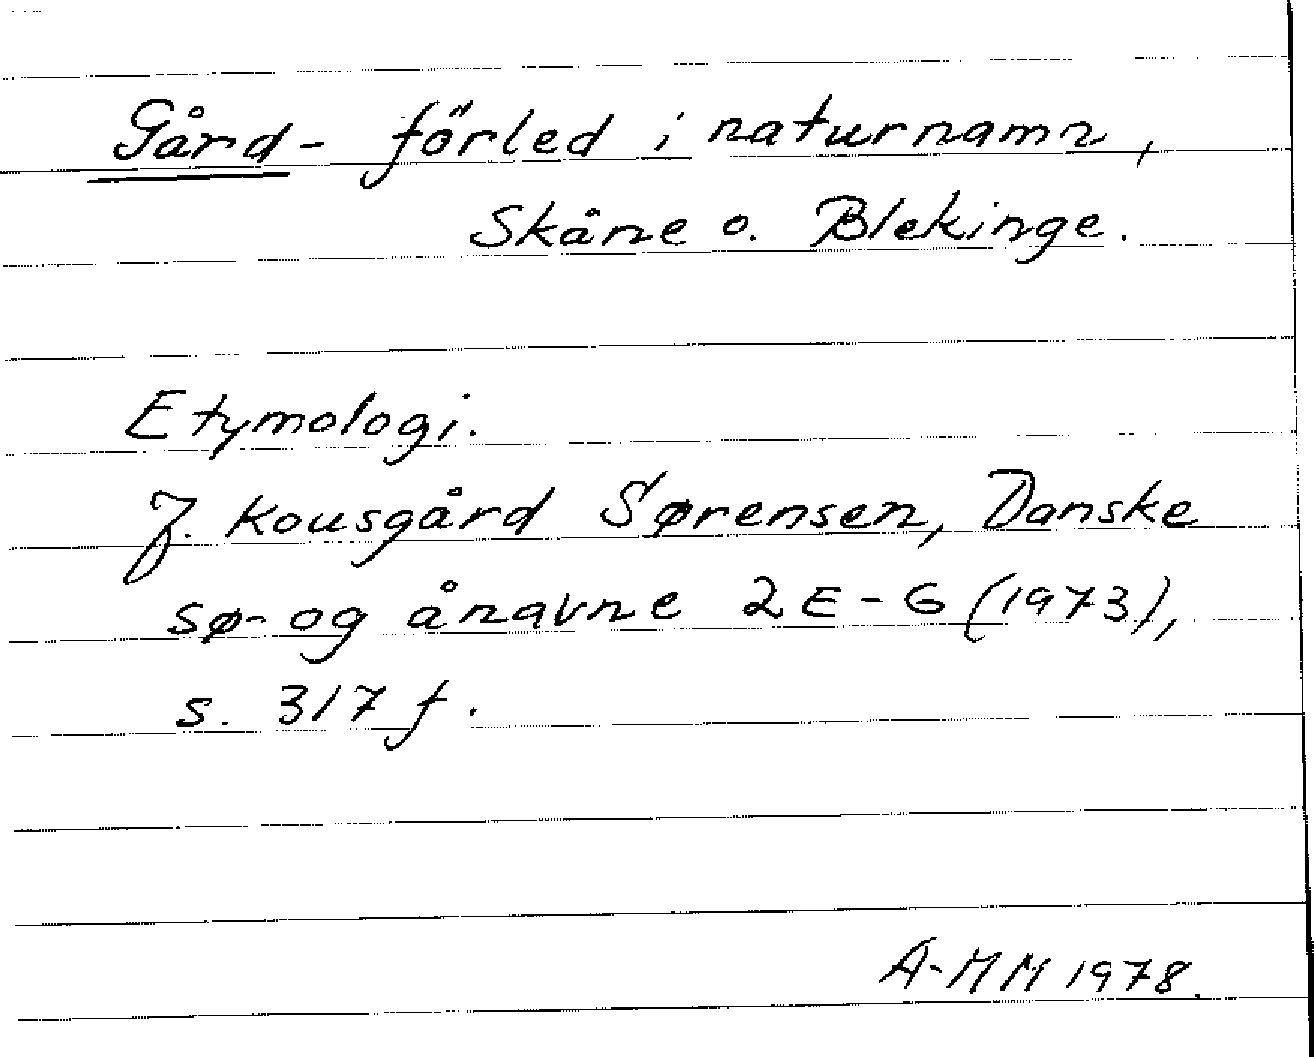 Gård- förled i naturnamn,
Skåne o. Blekinge.
Etymologi.
J. Kousgård Sørensen, Danske
sø- og ånavne 2 E-G (1973),
s. 317 f.
A-MM 1978.